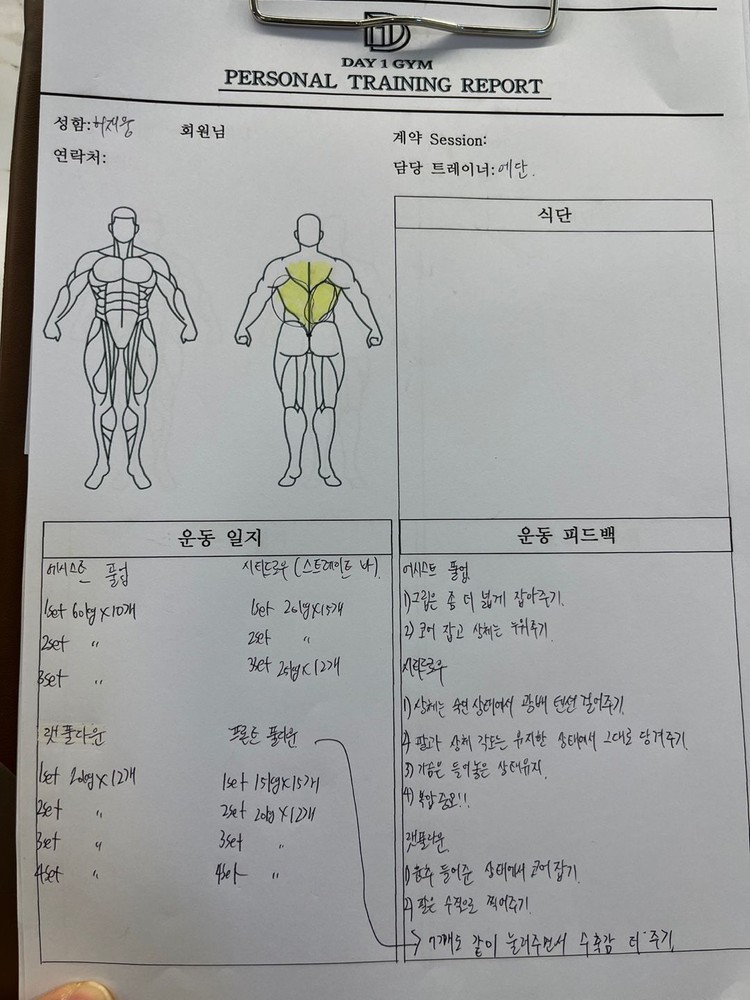 DAY 1 GYM
PERSONAL TRAINING REPORT
성함:허재왕 회원님
연락처:
계약 Session:
담당 트레이너:에단.
식단
운동 일지
어시스트 풀업
1set 60kg×10개
2set 〃
3set 〃
시티드로우 (스트레이트 바)
1set 20kg×15개
2set 〃
3set 25kg×12개
랫 풀다운
1set 20kg×12개
2set 〃
3set 〃
4set 〃
프론트 풀다운
1set 15kg×15개
2set 20kg×12개
3set 〃
4set 〃
운동 피드백
어시스트 풀업
1) 그립은 좀 더 넓게 잡아주기.
2) 코어 잡고 상체는 누워주기.
시티드로우
1) 상체는 숙인 상태에서 광배 텐션 걸어주기.
2) 팔과 상체 각도는 유지한 상태에서 그대로 당겨주기.
3) 가슴은 들어놓은 상태유지.
4) 복압 중요!!
랫풀다운
1) 흉추 들어준 상태에서 코어 잡기.
2) 팔은 수직으로 찍어주기.
→ 같이 눌러주면서 수축감 더 주기.